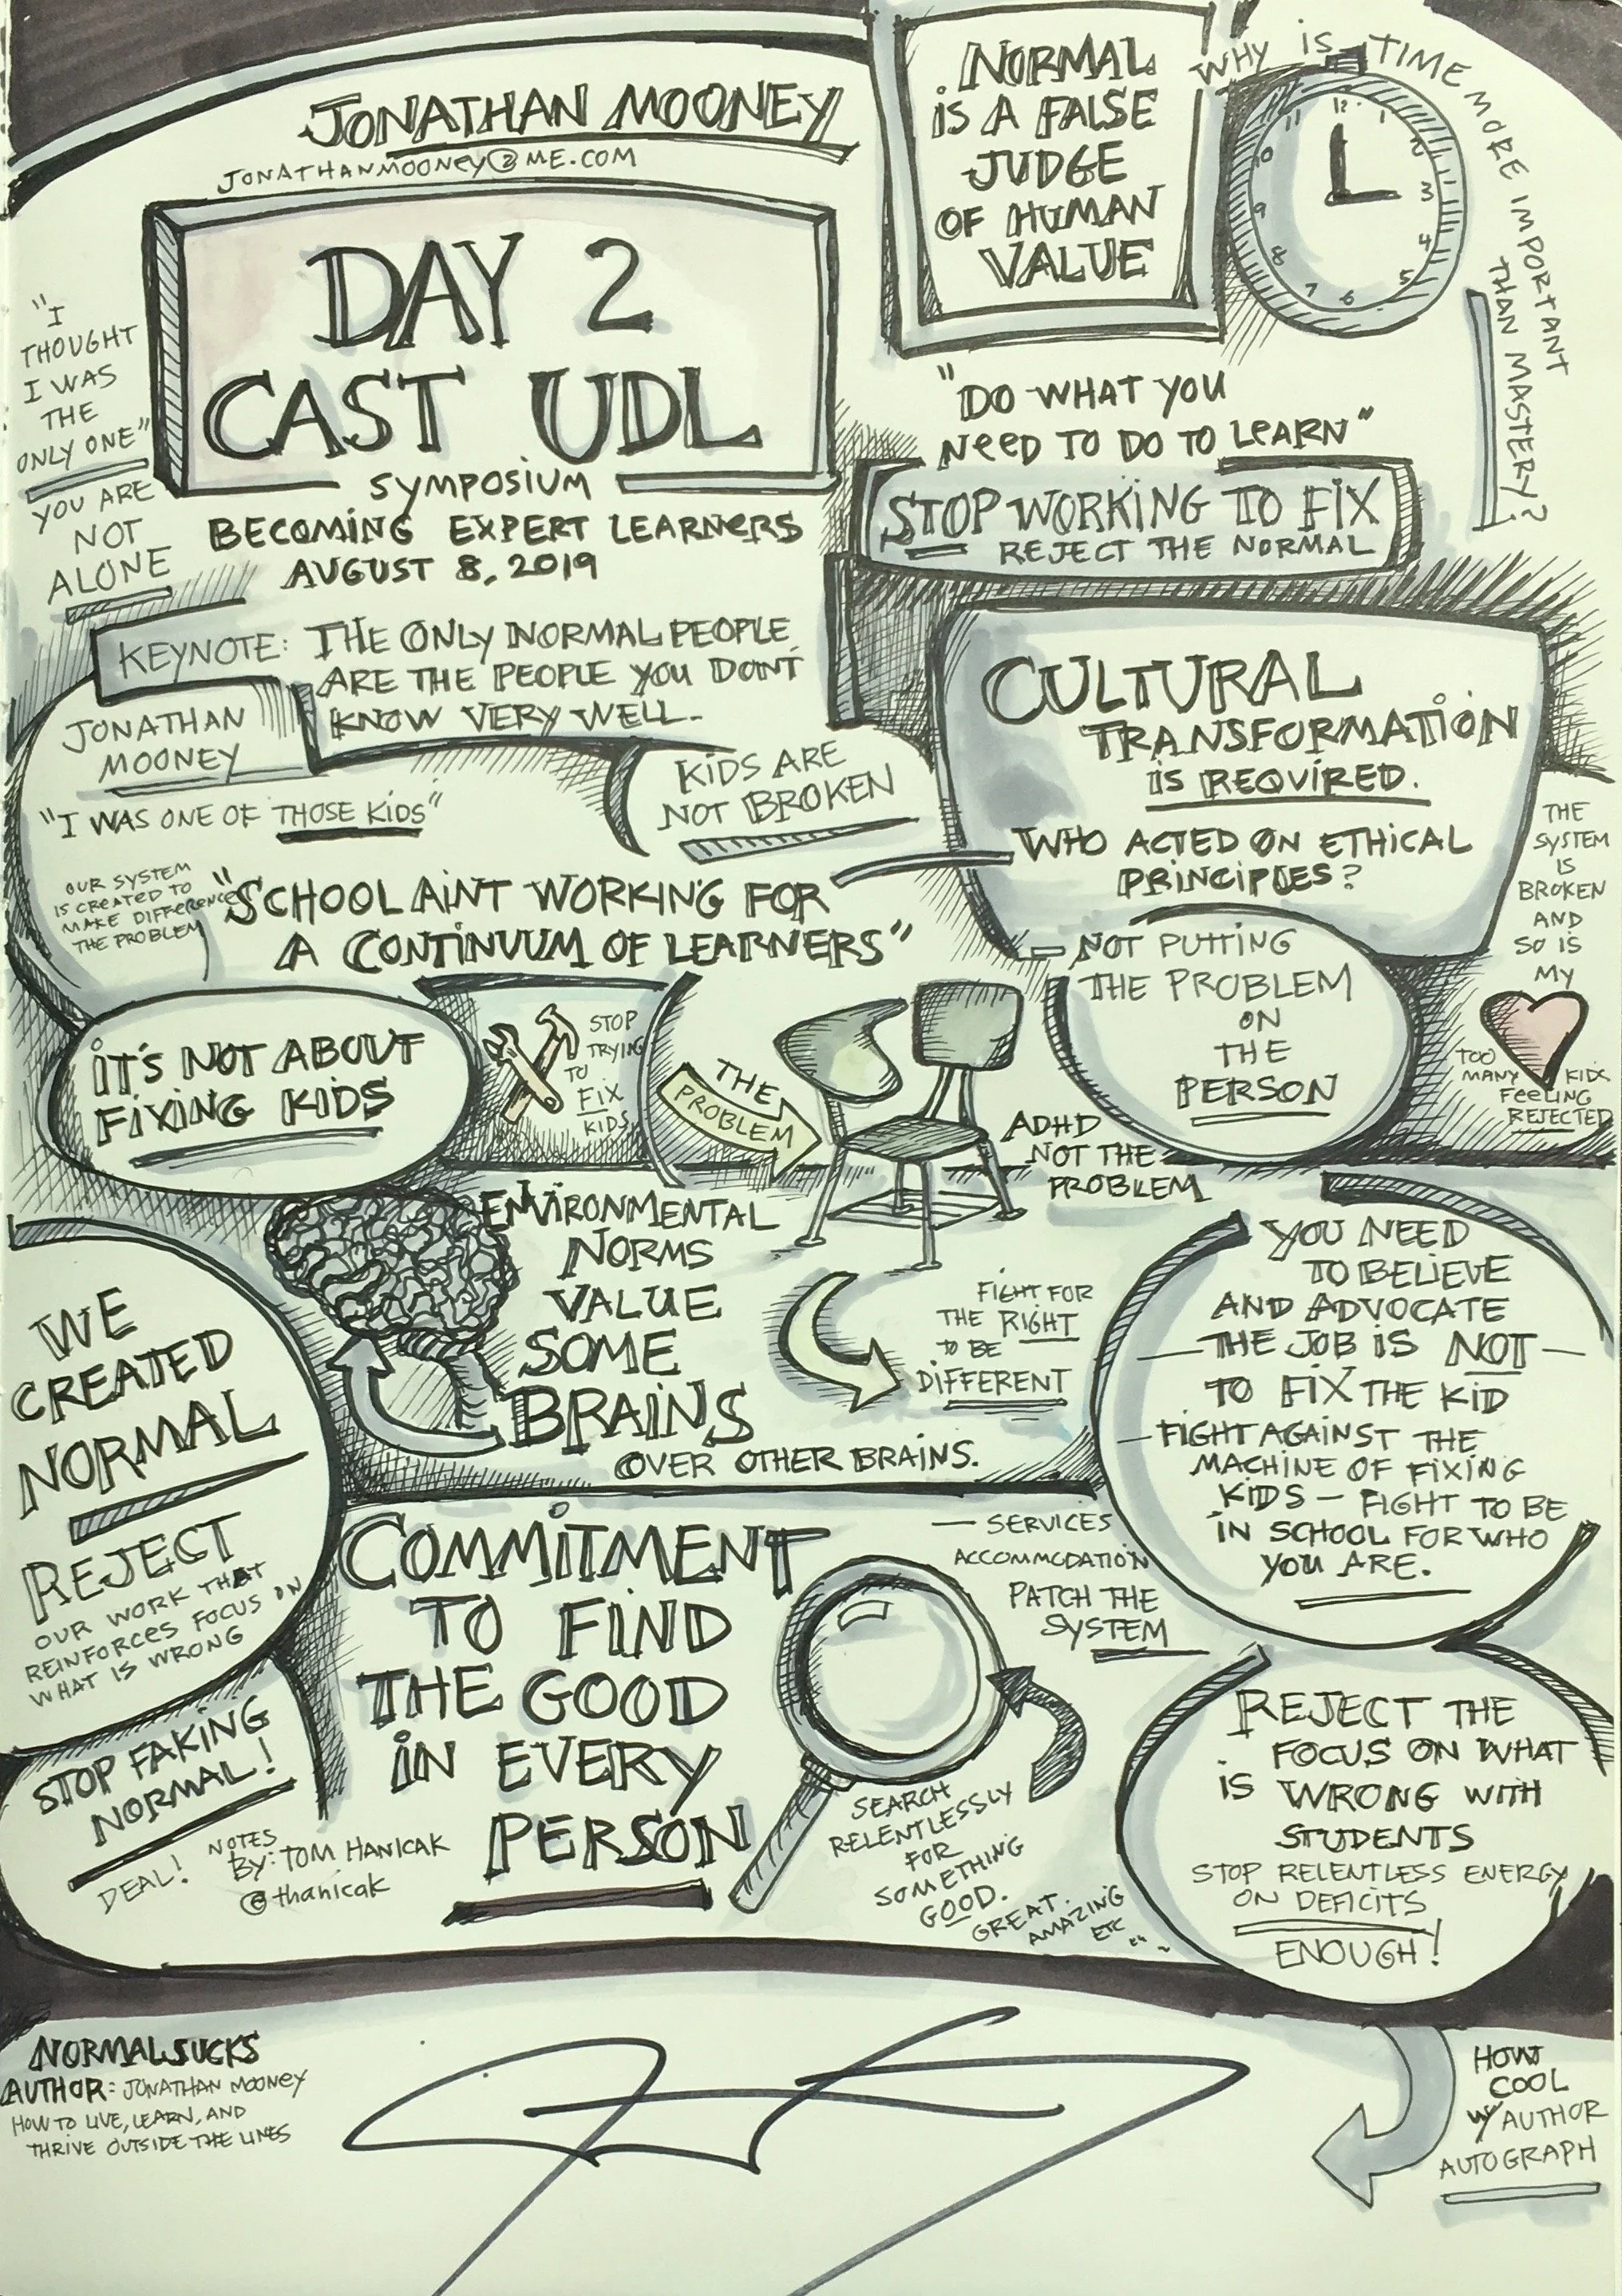 JONATHAN MOONEY
JONATHANMOONEY@ME.COM
DAY 2
CAST UDL
SYMPOSIUM
BECOMING EXPERT LEARNERS
AUGUST 8, 2019
"I
THOUGHT
I WAS
THE
ONLY ONE"
YOU ARE
NOT
ALONE
NORMAL
IS A FALSE
JUDGE
OF HUMAN
VALUE
WHY IS TIME MORE IMPORTANT
THAN MASTERY?
12
1
2
3
4
5
6
7
8
9
10
11
"DO WHAT YOU
NEED TO DO TO LEARN"
STOP WORKING TO FIX
REJECT THE NORMAL
KEYNOTE: THE ONLY NORMAL PEOPLE
ARE THE PEOPLE YOU DONT
KNOW VERY WELL.
JONATHAN
MOONEY
"I WAS ONE OF THOSE KIDS"
KIDS ARE
NOT BROKEN
OUR SYSTEM
IS CREATED TO
MAKE DIFFERENCE
THE PROBLEM
"SCHOOL AINT WORKING FOR
A CONTINUUM OF LEARNERS"
CULTURAL
TRANSFORMATION
IS REQUIRED.
WHO ACTED ON ETHICAL
PRINCIPLES?
- NOT PUTTING
THE PROBLEM
ON
THE
PERSON
THE
SYSTEM
IS
BROKEN
AND
SO IS
MY
TOO
MANY KIDS
FEELING
REJECTED
IT'S NOT ABOUT
FIXING KIDS
STOP
TRYING
TO
FIX
KIDS
THE
PROBLEM
ADHD
NOT THE
PROBLEM
ENVIRONMENTAL
NORMS
VALUE
SOME
BRAINS
OVER OTHER BRAINS.
FIGHT FOR
THE RIGHT
TO BE
DIFFERENT
YOU NEED
TO BELIEVE
AND ADVOCATE
— THE JOB IS NOT —
TO FIX THE KID
— FIGHT AGAINST THE
MACHINE OF FIXING
KIDS — FIGHT TO BE
IN SCHOOL FOR WHO
YOU ARE.
WE
CREATED
NORMAL
REJECT
OUR WORK THAT
REINFORCES FOCUS ON
WHAT IS WRONG
STOP FAKING
NORMAL!
DEAL!
NOTES
BY: TOM HANICAK
@thanicak
COMMITMENT
TO FIND
THE GOOD
IN EVERY
PERSON
— SERVICES
ACCOMMODATION
PATCH THE
SYSTEM
SEARCH
RELENTLESSLY
FOR
SOMETHING
GOOD.
GREAT.
AMAZING
ETC
REJECT THE
FOCUS ON WHAT
IS WRONG WITH
STUDENTS
STOP RELENTLESS ENERGY
ON DEFICITS
ENOUGH!
NORMAL SUCKS
AUTHOR: JONATHAN MOONEY
HOW TO LIVE, LEARN, AND
THRIVE OUTSIDE THE LINES
HOW
COOL
W/ AUTHOR
AUTOGRAPH